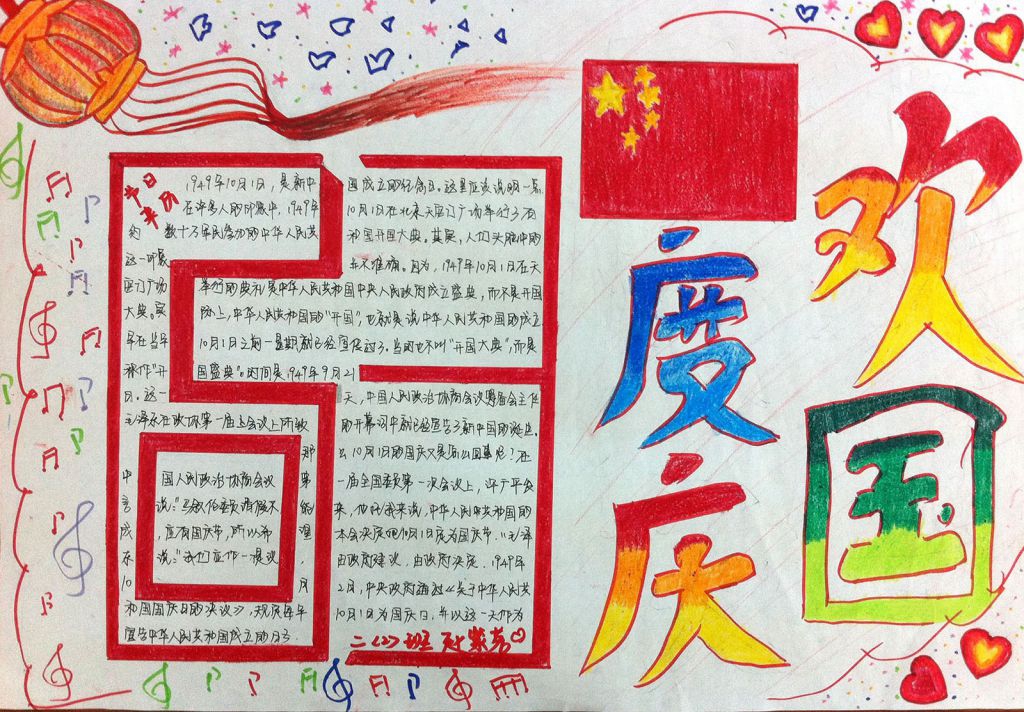 欢
度
国
庆
节日
来历
1949年10月1日,是新中国成立的纪念日。这里应该说明一点,
在许多人的印象中,1949年10月1日在北京天安门广场举行了有
约数十万军民参加的中华人民共和国开国大典。其实,人们头脑中的
这一印象并不准确。因为,1949年10月1日在天
安门广场举行的典礼是中华人民共和国中央人民政府成立盛典,而不是开国
大典。实际上,中华人民共和国的“开国”,也就是说中华人民共和国的成立,
早在当年10月1日之前一星期就已经宣传过了。当时也不叫“开国大典”,而是
称作“开国盛典”。时间是1949年9月21
日。这一天,中国人民政治协商会议筹备会主任
毛泽东在政协第一届会议上所致的开幕词中就已经宣告了新中国的诞生。
那么10月1日的国庆又是怎么回事呢?在
中国人民政治协商会议第一届全国委员第一次会议上,许广平发
言说:“马叙伦委员请假不能来,他托我来说,中华人民共和国的
成应有国庆节,所以希望本会决定把10月1日定为国庆节。”毛泽
东说:“我们应作一提议,由政府建议,由政府决定.1949年
10月2月,中央政府通过《关于中华人民共
和国国庆日的决议》,规定每年10月1日为国庆日,并以这一天作为
宣告中华人民共和国成立的日子。
二(2)班